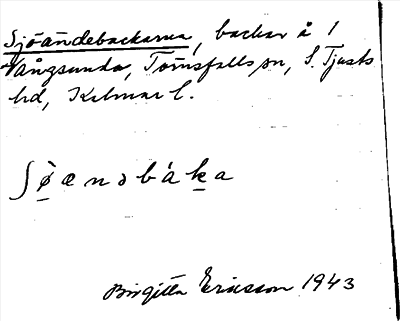 Sjöändebackarna, backar å 1
Vångsunda, Törnsfalls sn, S. Tjusts
hd, Kalmar l.
ʃø̀ændbáka
Birgitta Ericsson 1943